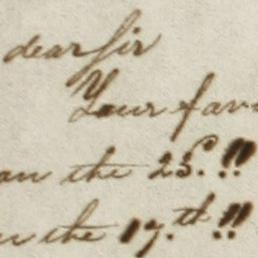 dear Sir
Your fav
an the 25.
the 17.th